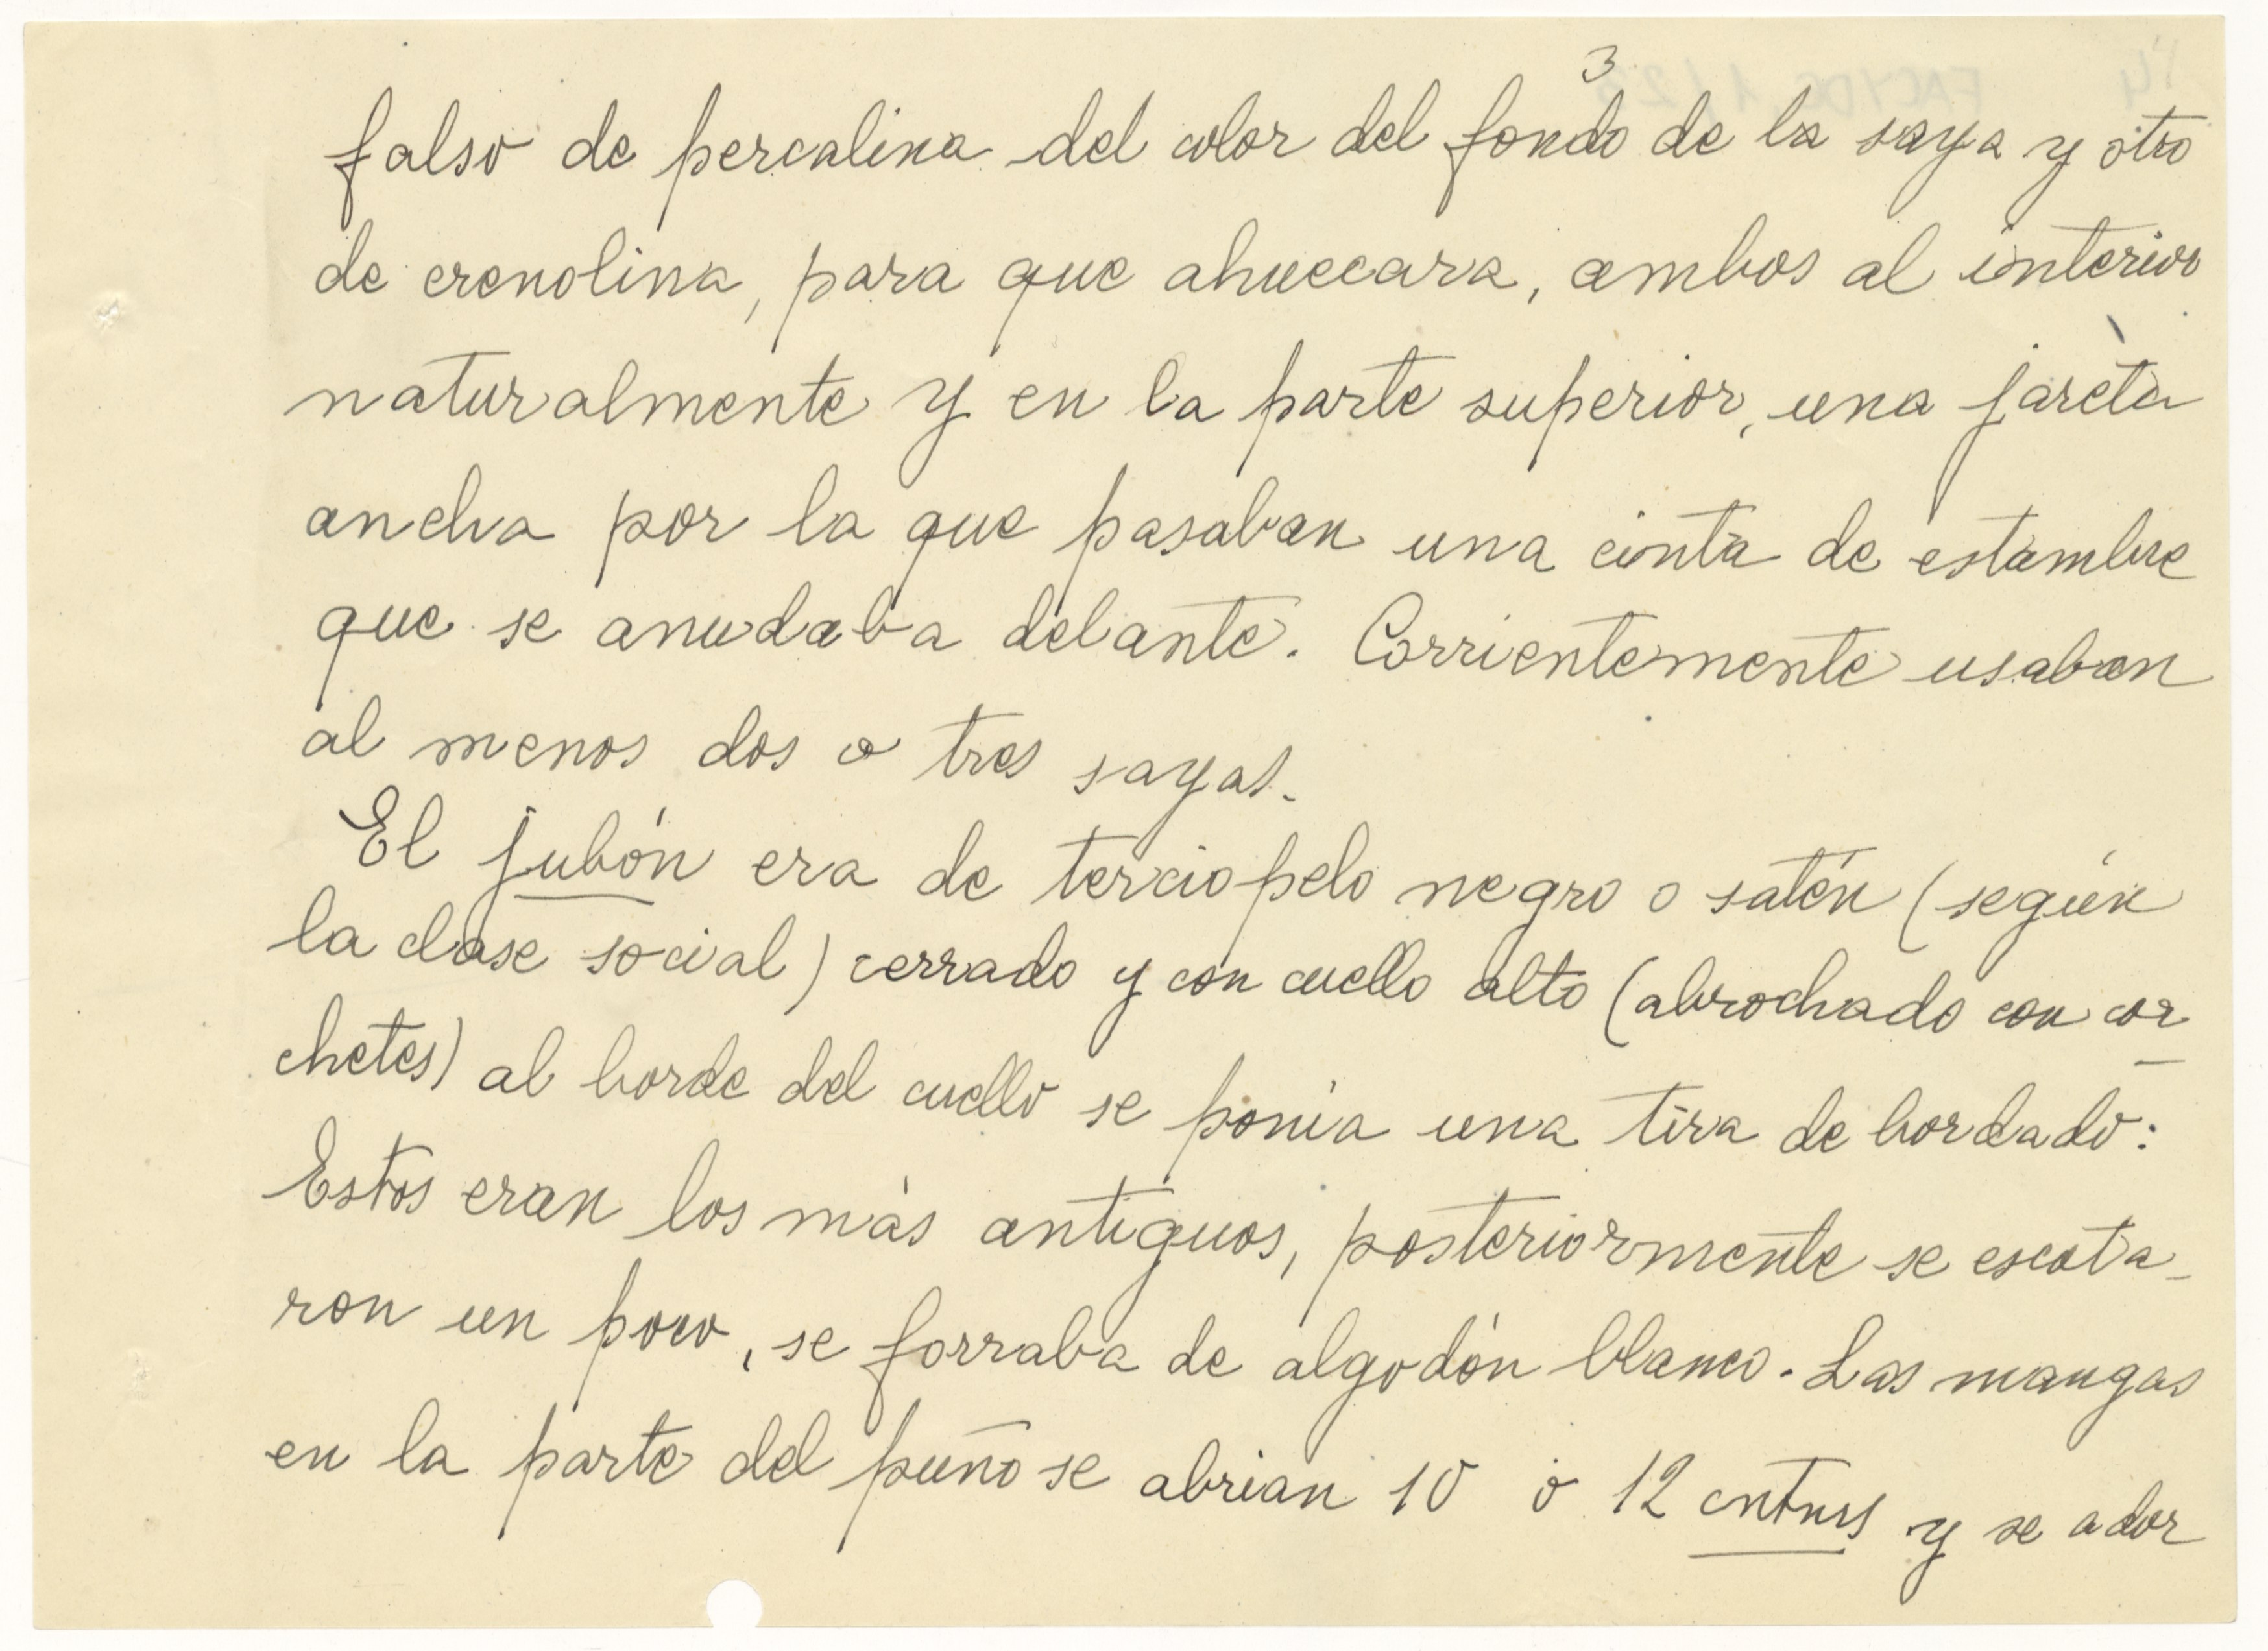 3
falso de percalina del color del fondo de la saya y otro
de crenolina, para que ahuecara, ambos al interior
naturalmente y en la parte superior, una jareta
ancha por la que pasaban una cinta de estambre
que se anudaba delante. Corrientemente usaban
al menos dos o tres sayas.
El jubón era de terciopelo negro o satén (según
la clase social) cerrado y con cuello alto (abrochado con cor
chetes) al borde del cuello se ponía una tira de bordado:
Estos eran los más antiguos, posteriormente se escota-
ron un poco, se forraba de algodón blanco. Las mangas
en la parte del puño se abrian 10 ó 12 cntms y se ador